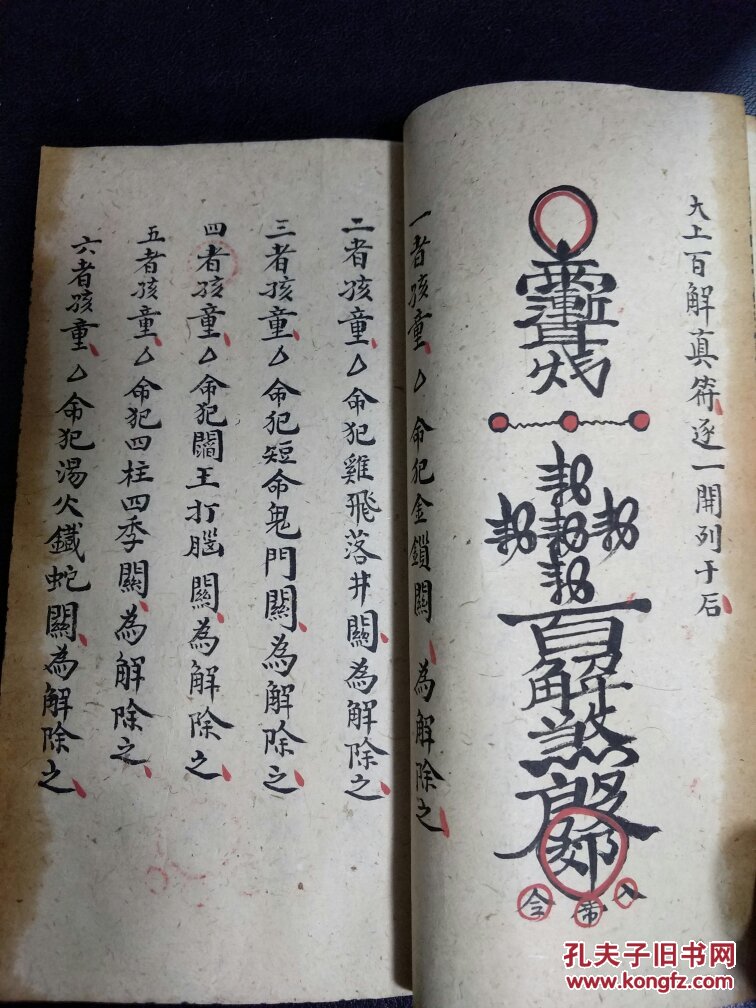 大上百解真符逐一開列于后
百解煞
一者孩童厶命犯金鎖關為解除之
二者孩童厶命犯雞飛落井關為解除之
三者孩童厶命犯短命鬼門關為解除之
四者孩童厶命犯閻王打腦關為解除之
五者孩童厶命犯四柱四季關為解除之
六者孩童厶命犯湯火鐵蛇關為解除之
孔夫子旧书网
www.kongfz.com